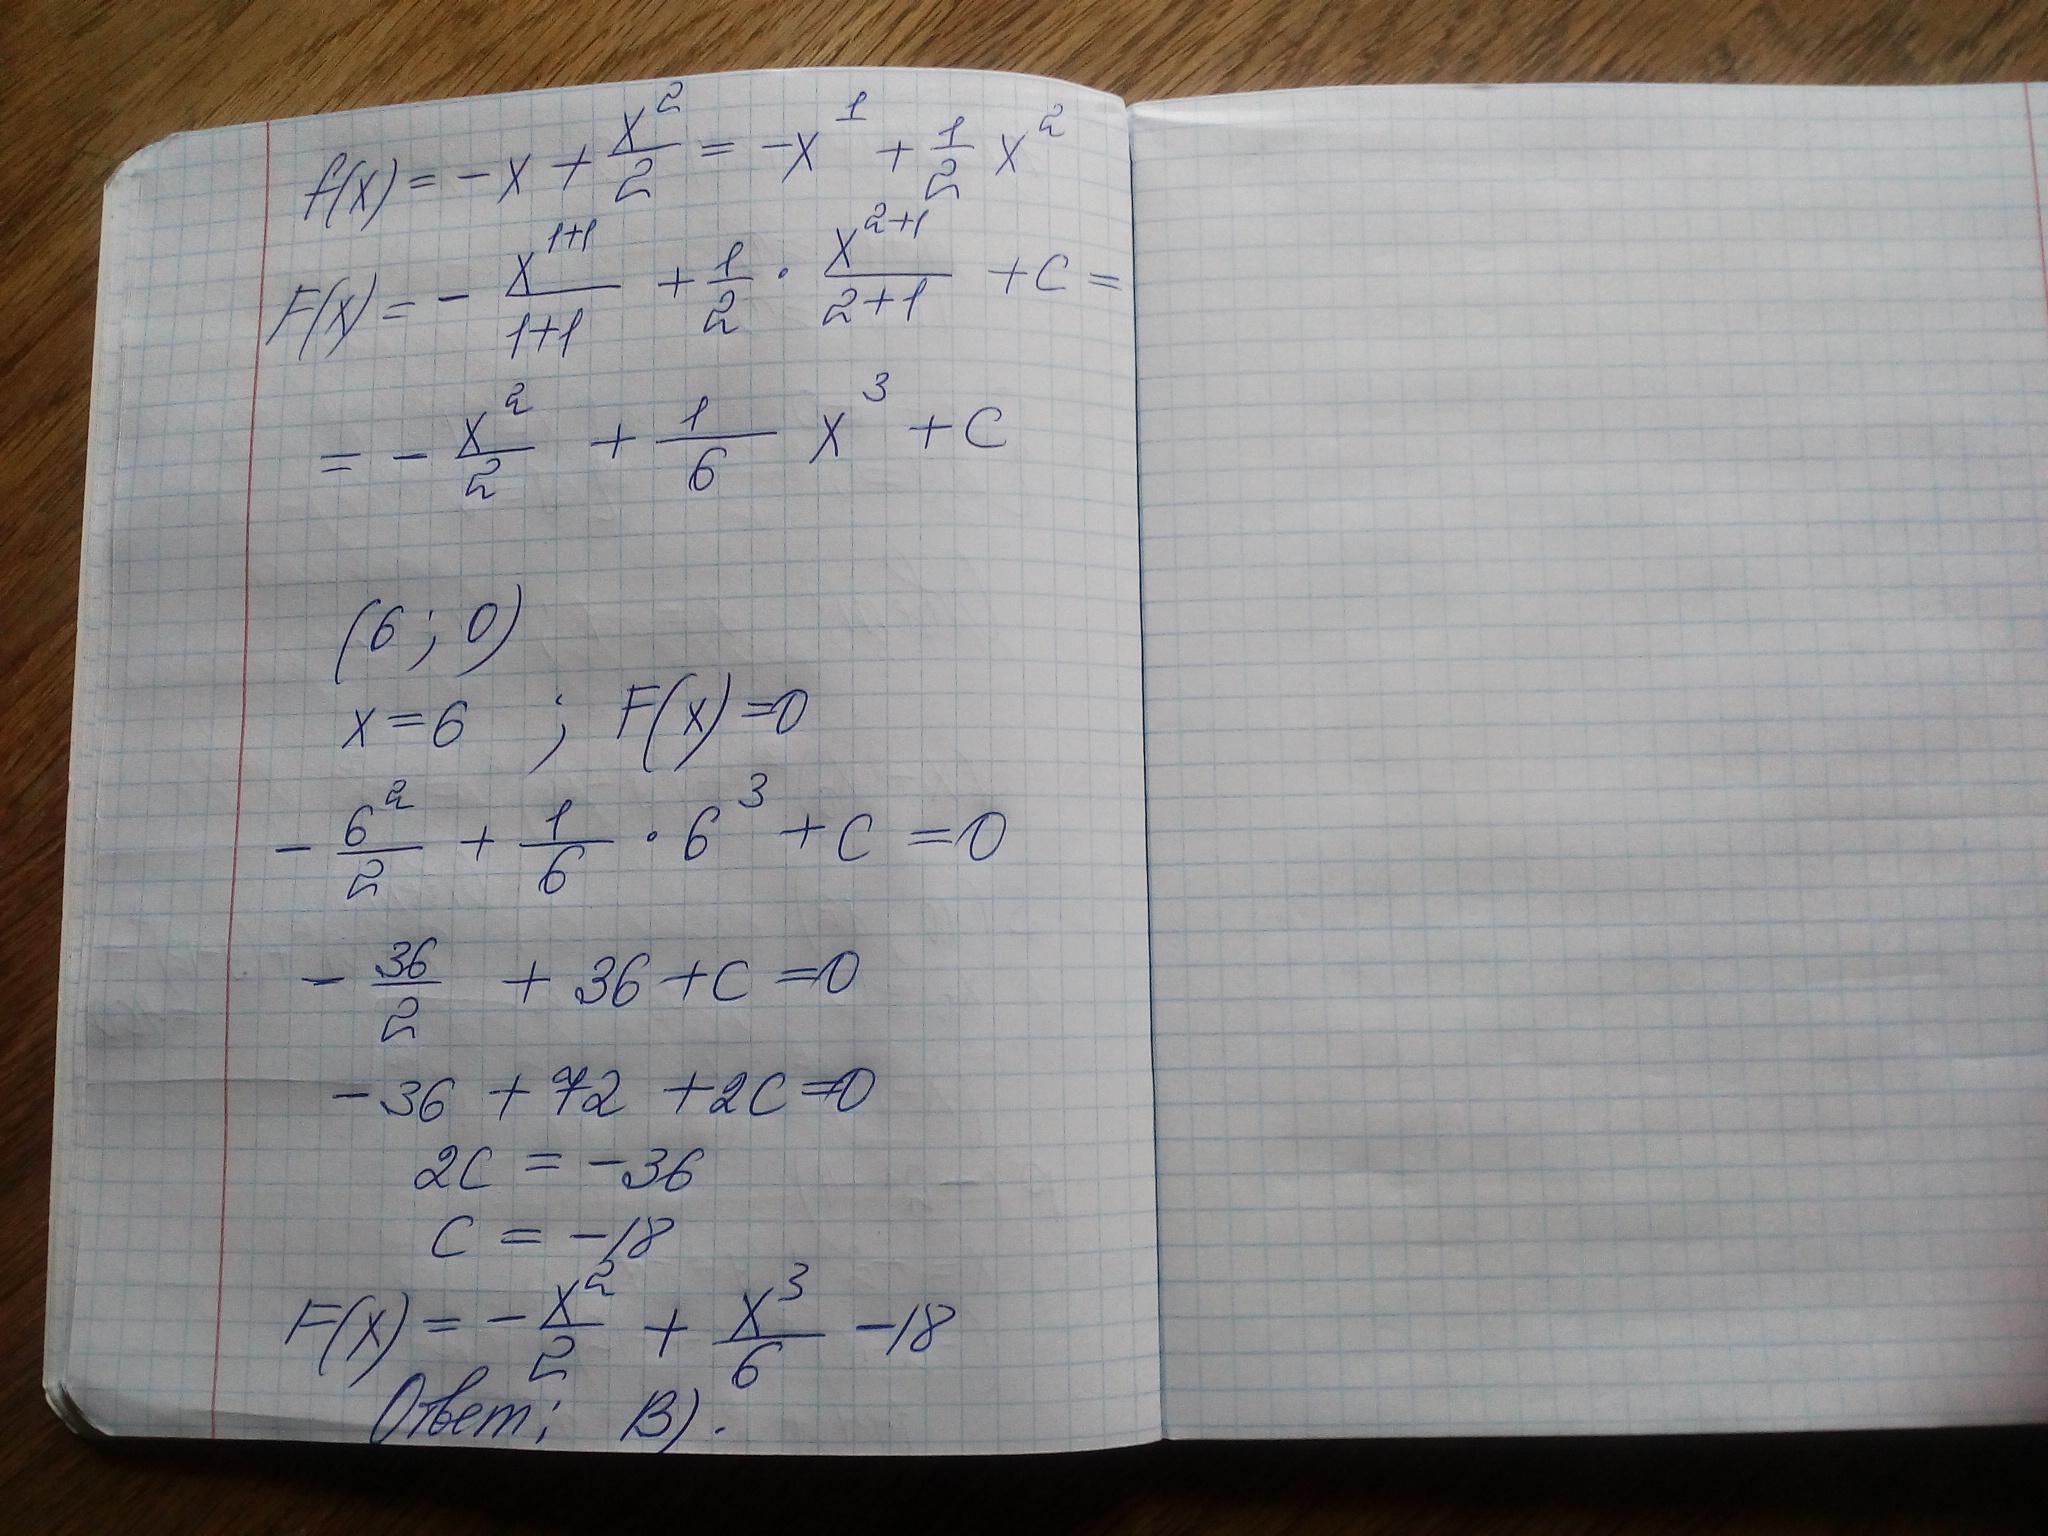 f(x) = -x + x²/2 = -x¹ + 1/2 x²
F(x) = - x¹⁺¹/1+1 + 1/2 · x²⁺¹/2+1 + C =
= - x²/2 + 1/6 x³ + C
(6; 0)
x = 6 ; F(x) = 0
- 6²/2 + 1/6 · 6³ + C = 0
- 36/2 + 36 + C = 0
-36 + 72 + 2C = 0
2C = -36
C = -18
F(x) = - x²/2 + x³/6 - 18
Ответ; В).